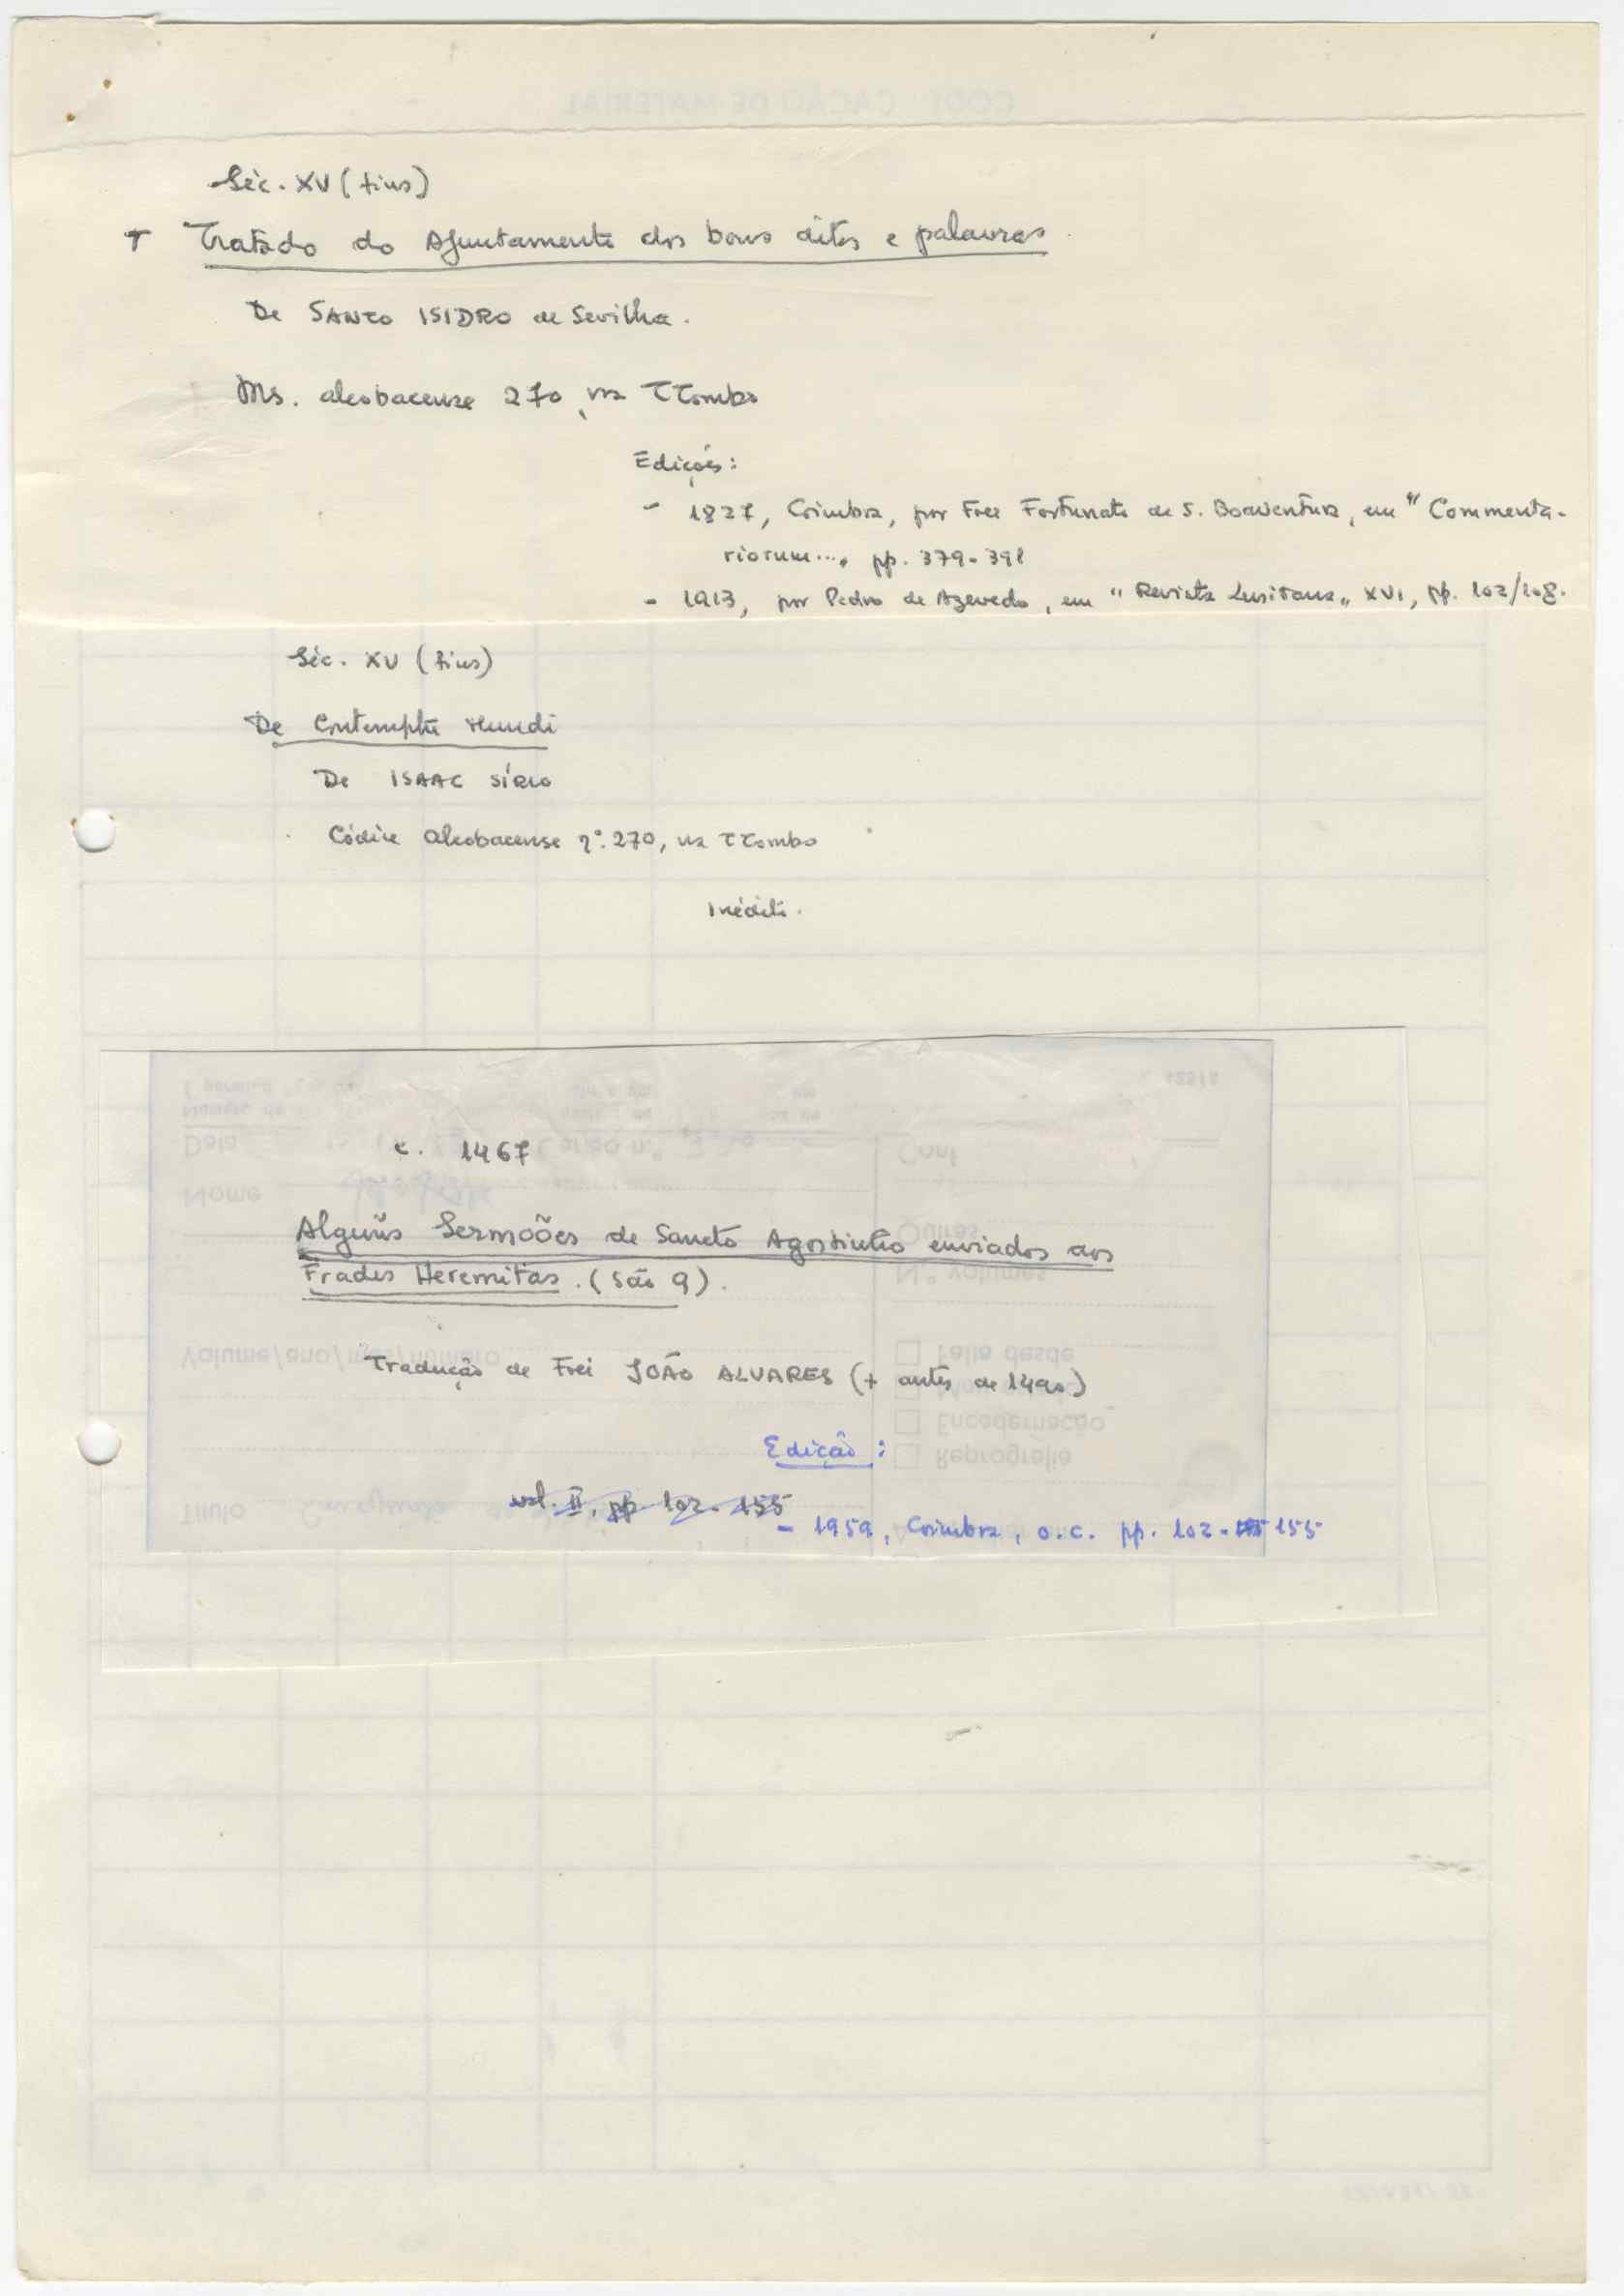 Séc. XV (fins)
T Tratado do Ajuntamento dos bons ditos e palavras.
De SANTO ISIDRO de Sevilha.
Ms. alcobacense 270, na TTombo
Edições:
- 1827, Coimbra, por Frei Fortunato de S. Boaventura, em "Commenta-
riorum..." pp. 379-398
- 1913, por Pedro de Azevedo, em "Revista Lusitana" XVI, pp. 102/108.
Séc. XV (fins)
De Contemptu Mundi
De ISAAC SÍRIO
Códice Alcobacense nº. 270, na TTombo
Inédito.
c. 1467
Alguũs Sermoões de Sancto Agostinho enviados aos
Frades Heremitas. (São 9).
Tradução de Frei JOÃO ALVARES (+ antes de 1490)
Edição:
vol. II, pp 102-155
- 1959, Coimbra, o.c. pp. 102-155